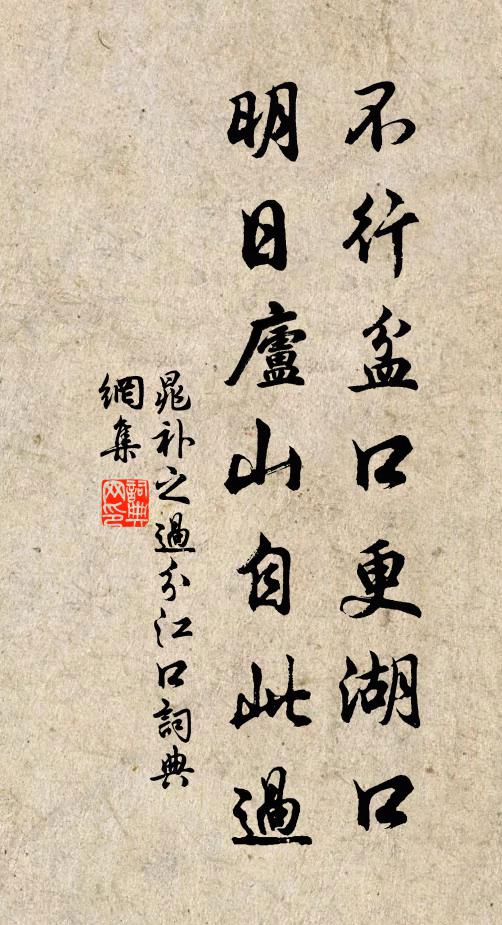 不行盆口更湖口
明日廬山自此過
晁补之過分江口詞典
網集
詞典網印